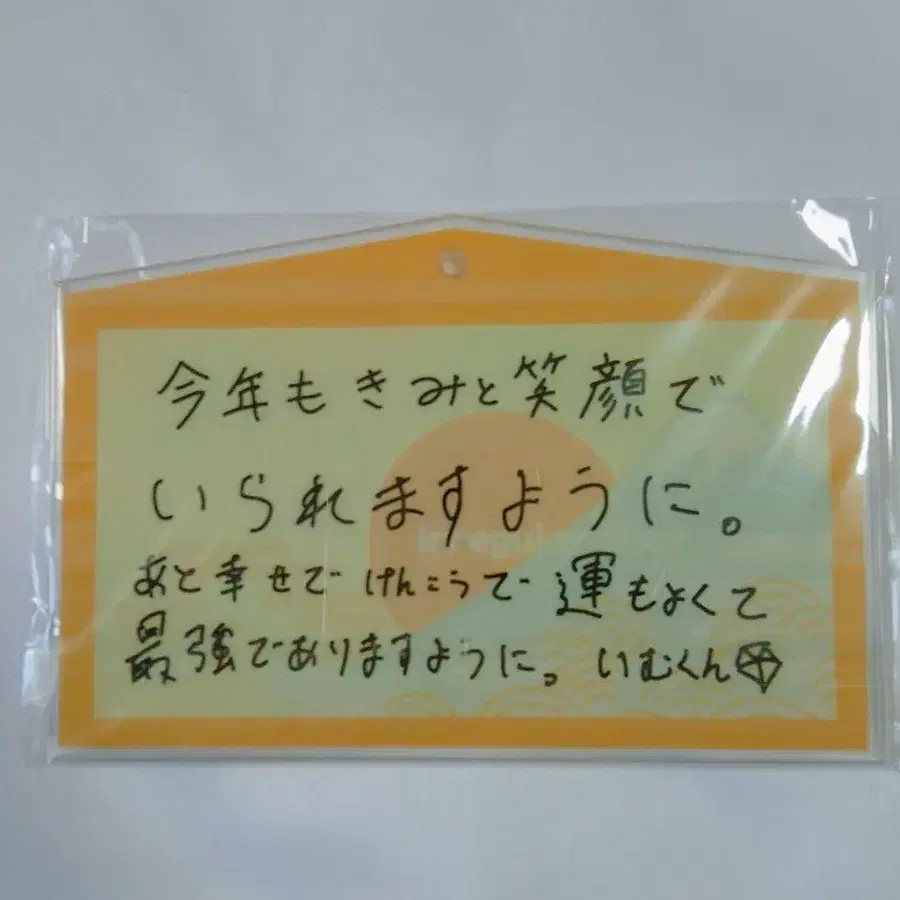 今年もきみと笑顔で
いられますように。
あと幸せで けんこうで 運もよくて
最強でありますように。 いむくん